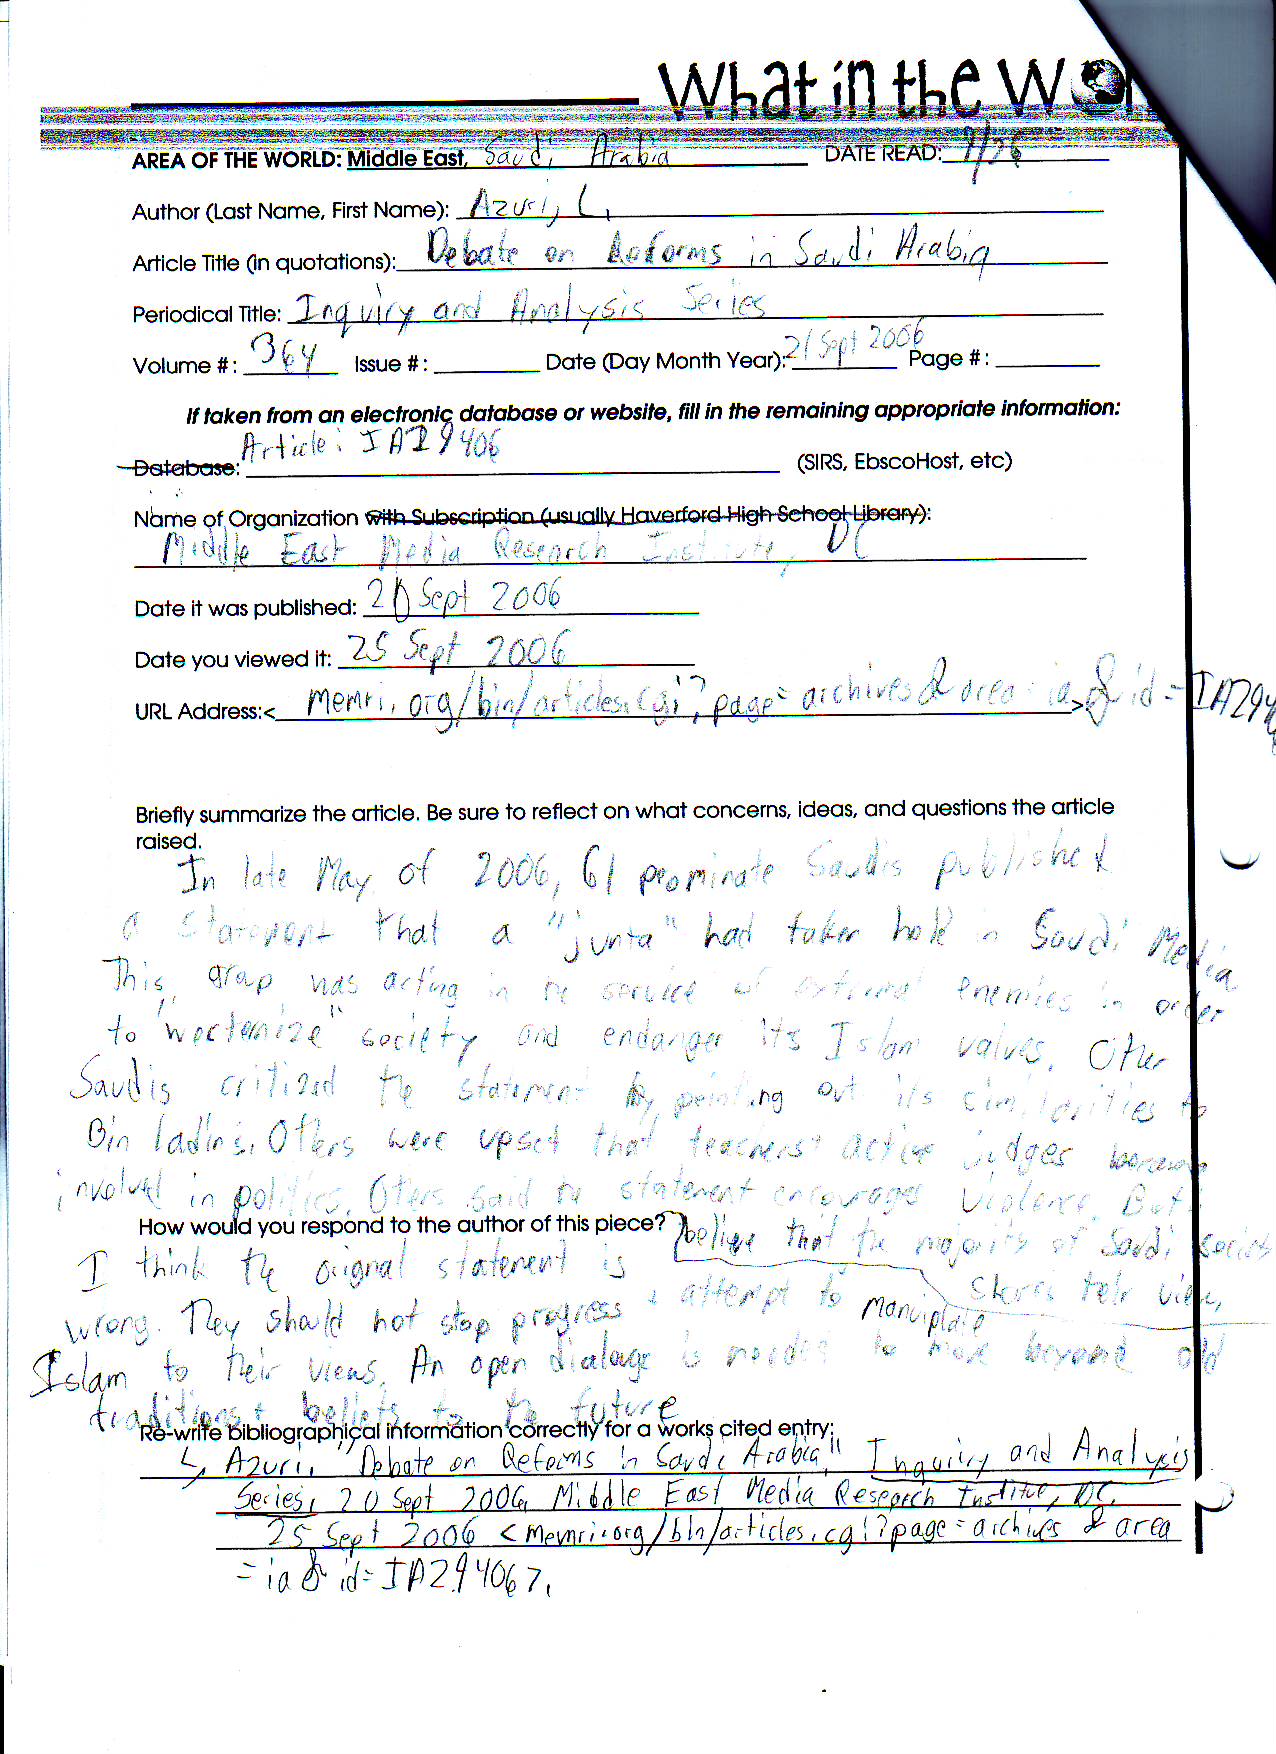 What in the Wor
AREA OF THE WORLD: Middle East, Saudi Arabia DATE READ: 9/25
Author (Last Name, First Name): Azuri, L.
Article Title (in quotations): Debate on Reforms in Saudi Arabia
Periodical Title: Inquiry and Analysis Series
Volume #: 364 Issue #: Date (Day Month Year): 21 Sept 2006 Page #:
If taken from an electronic database or website, fill in the remaining appropriate information:
Article: IA29406
Database: (SIRS, EbscoHost, etc)
Name of Organization with Subscription (usually Haverford High School Library):
Middle East Media Research Institute, DC
Date it was published: 20 Sept 2006
Date you viewed it: 25 Sept 2006
URL Address:< memri.org/bin/articles.cgi?page=archives&area=ia>&id=IA294
Briefly summarize the article. Be sure to reflect on what concerns, ideas, and questions the article
raised.
In late May of 2006, 61 prominate Saudis published
a statement that a "junta" had taken hold in Saudi Media
This group was acting in the service of enemies in order
to "westernize" society and endanger its Islam values. Other
Saudis critized the statement by pointing out its similarities to
Bin ladin's. Others were upset that teachers + active judges became
involved in politics. Others said the statement encourages violence. But
How would you respond to the author of this piece? believe that the majority of Saudi society
I think the original statement is shares their view,
wrong. They should not stop progress + attempt to manuiplate
Islam to their views. An open dialouge is needed to move beyond old
traditions + beliefs to the future
Re-write bibliographical information correctly for a works cited entry:
L, Azuri, "Debate on Reforms in Saudi Arabia" Inquiry and Analysis
Series, 20 Sept 2006, Middle East Media Research Institue, DC.
25 Sept 2006 <memri.org/bin/articles.cgi?page=archives & area
=ia & id=IA29406>.